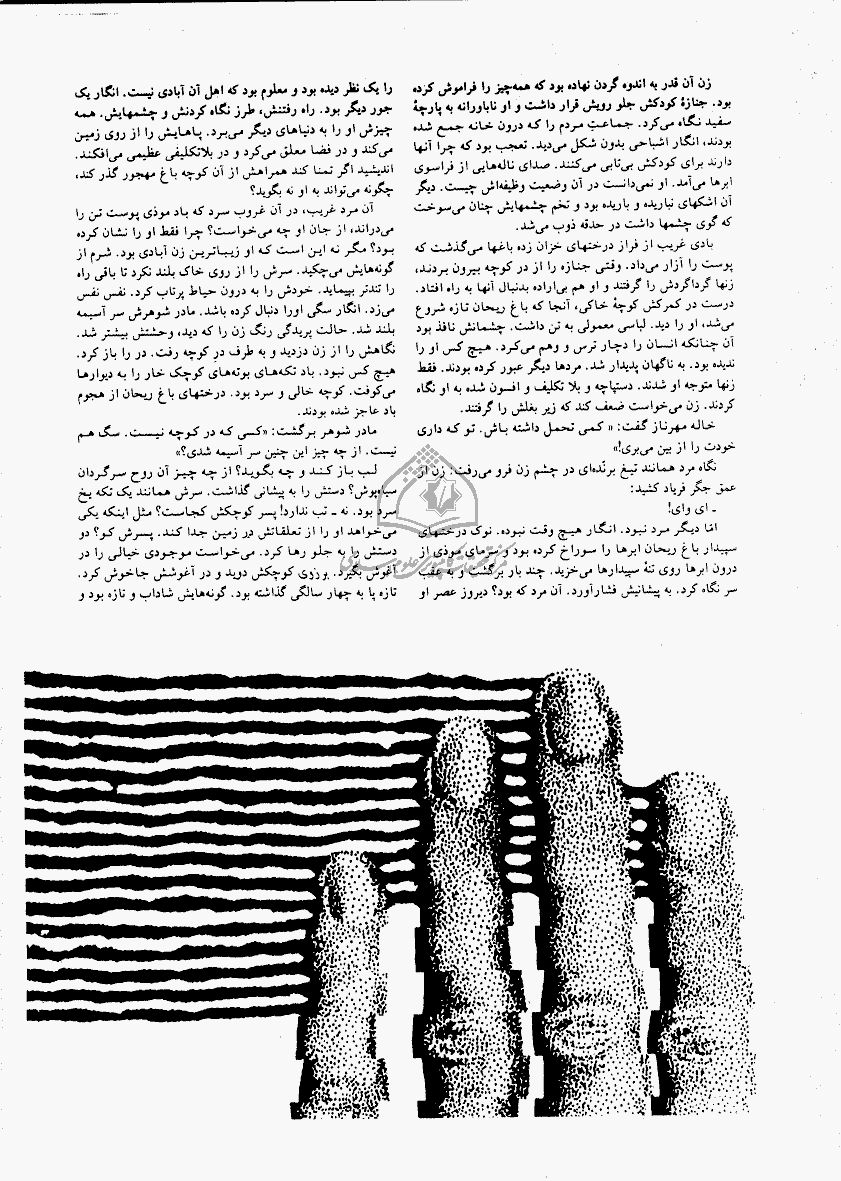 زن آن قدر به اندوه گردن نهاده بود که همه‌چیز را فراموش کرده
بود. جنازهٔ کودکش جلو رویش قرار داشت و او ناباورانه به پارچهٔ
سفید نگاه می‌کرد. جماعتِ مردم را که درون خانه جمع شده
بودند، انگار اشباحی بدون شکل می‌دید. تعجب بود که چرا آنها
دارند برای کودکش بی‌تابی می‌کنند. صدای ناله‌هایی از فراسوی
ابرها می‌آمد. او نمی‌دانست در آن وضعیت وظیفه‌اش چیست. دیگر
آن اشکهای نباریده و باریده بود و تخم چشمهایش چنان می‌سوخت
که گوی چشمها داشت در حدقه ذوب می‌شد.
بادی غریب از فراز درختهای خزان زده باغها می‌گذشت که
پوست را آزار می‌داد. وقتی جنازه را از در کوچه بیرون بردند،
زنها گرداگردش را گرفتند و او هم بی‌اراده بدنبال آنها به راه افتاد.
درست در کمرکش کوچهٔ خاکی، آنجا که باغ ریحان تازه شروع
می‌شد، او را دید. لباسی معمولی به تن داشت. چشمانش نافذ بود
آن چنانکه انسان را دچار ترس و وهم می‌کرد. هیچ کس او را
ندیده بود. به ناگهان پدیدار شد. مردها دیگر عبور کرده بودند. فقط
زنها متوجه او شدند. دستپاچه و بلا تکلیف و افسون شده به او نگاه
کردند. زن می‌خواست ضعف کند که زیر بغلش را گرفتند.
خاله مهرناز گفت: « کمی تحمل داشته باش. تو که داری
خودت را از بین می‌بری!»
نگاه مرد همانند تیغ برنّده‌ای در چشم زن فرو می‌رفت. زن از
عمق جگر فریاد کشید:
ـ ای وای!
امّا دیگر مرد نبود. انگار هیچ وقت نبوده. نوک درختهای
سپیدار باغ ریحان ابرها را سوراخ کرده بود و سرمای موذی از
درون ابرها روی تنهٔ سپیدارها می‌خزید. چند بار برگشت و به عقب
سر نگاه کرد. به پیشانیش فشارآورد. آن مرد که بود؟ دیروز عصر او
را یک نظر دیده بود و معلوم بود که اهل آن آبادی نیست. انگار یک
جور دیگر بود. راه رفتنش، طرز نگاه کردنش و چشمهایش. همه
چیزش او را به دنیاهای دیگر می‌برد. پـاهـایش را از روی زمین
می‌کند و در فضا معلق می‌کرد و در بلاتکلیفی عظیمی می‌افکند.
اندیشید اگر تمنا کند همراهش از آن کوچه باغ مهجور گذر کند،
چگونه می‌تواند به او نه بگوید؟
آن مرد غریب، در آن غروب سرد که باد موذی پوست تن را
می‌دراند، از جان او چه می‌خواست؟ چرا فقط او را نشان کرده
بـود؟ مگـر نـه ایـن اسـت کـه او زیبـاتریـن زن آبادی بود. شـرم از
گونه‌هایش می‌چکید. سرش را از روی خاک بلند نکرد تا باقی راه
را تندتر بپیماید. خودش را به درون حیاط پرتاب کرد. نفس نفس
می‌زد. انگار سگی اورا دنبال کرده باشد. مادر شوهرش سر آسیمه
بلند شد. حالت پریدگی رنگ زن را که دید، وحشتش بیشتر شد.
نگاهش را از زن دزدید و به طرف در کوچه رفت. در را باز کرد.
هیچ کس نبود. باد تکه‌های بوته‌های کوچک خار را به دیوارها
می‌کوفت. کوچه خالی و سرد بود. درختهای باغ ریحان از هجوم
باد عاجز شده بودند.
مادر شوهر برگشت: «کسی که در کوچه نیست. سگ هـم
نیست. از چه چیز این چنین سر آسیمه شدی؟»
لـب بـاز کـنـد و چـه بگـویـد؟ از چه چیـز آن روح سـرگـردان
سیاه‌پوش؟ دستش را به پیشانی گذاشت. سرش همانند یک تکه یخ
سرد بود. نه ـ تب ندارد! پسر کوچکش کجاست؟ مثل اینکه یکی
می‌خواهد او را از تعلقاتش در زمین جدا کند. پسرش کو؟ دو
دستش را به جلو رها کرد. می‌خواست موجودی خیالی را در
آغوش بگیرد. و زوی کوچکش دوید و در آغوشش جاخوش کرد.
تازه پا به چهار سالگی گذاشته بود. گونه‌هایش شاداب و تازه بود و